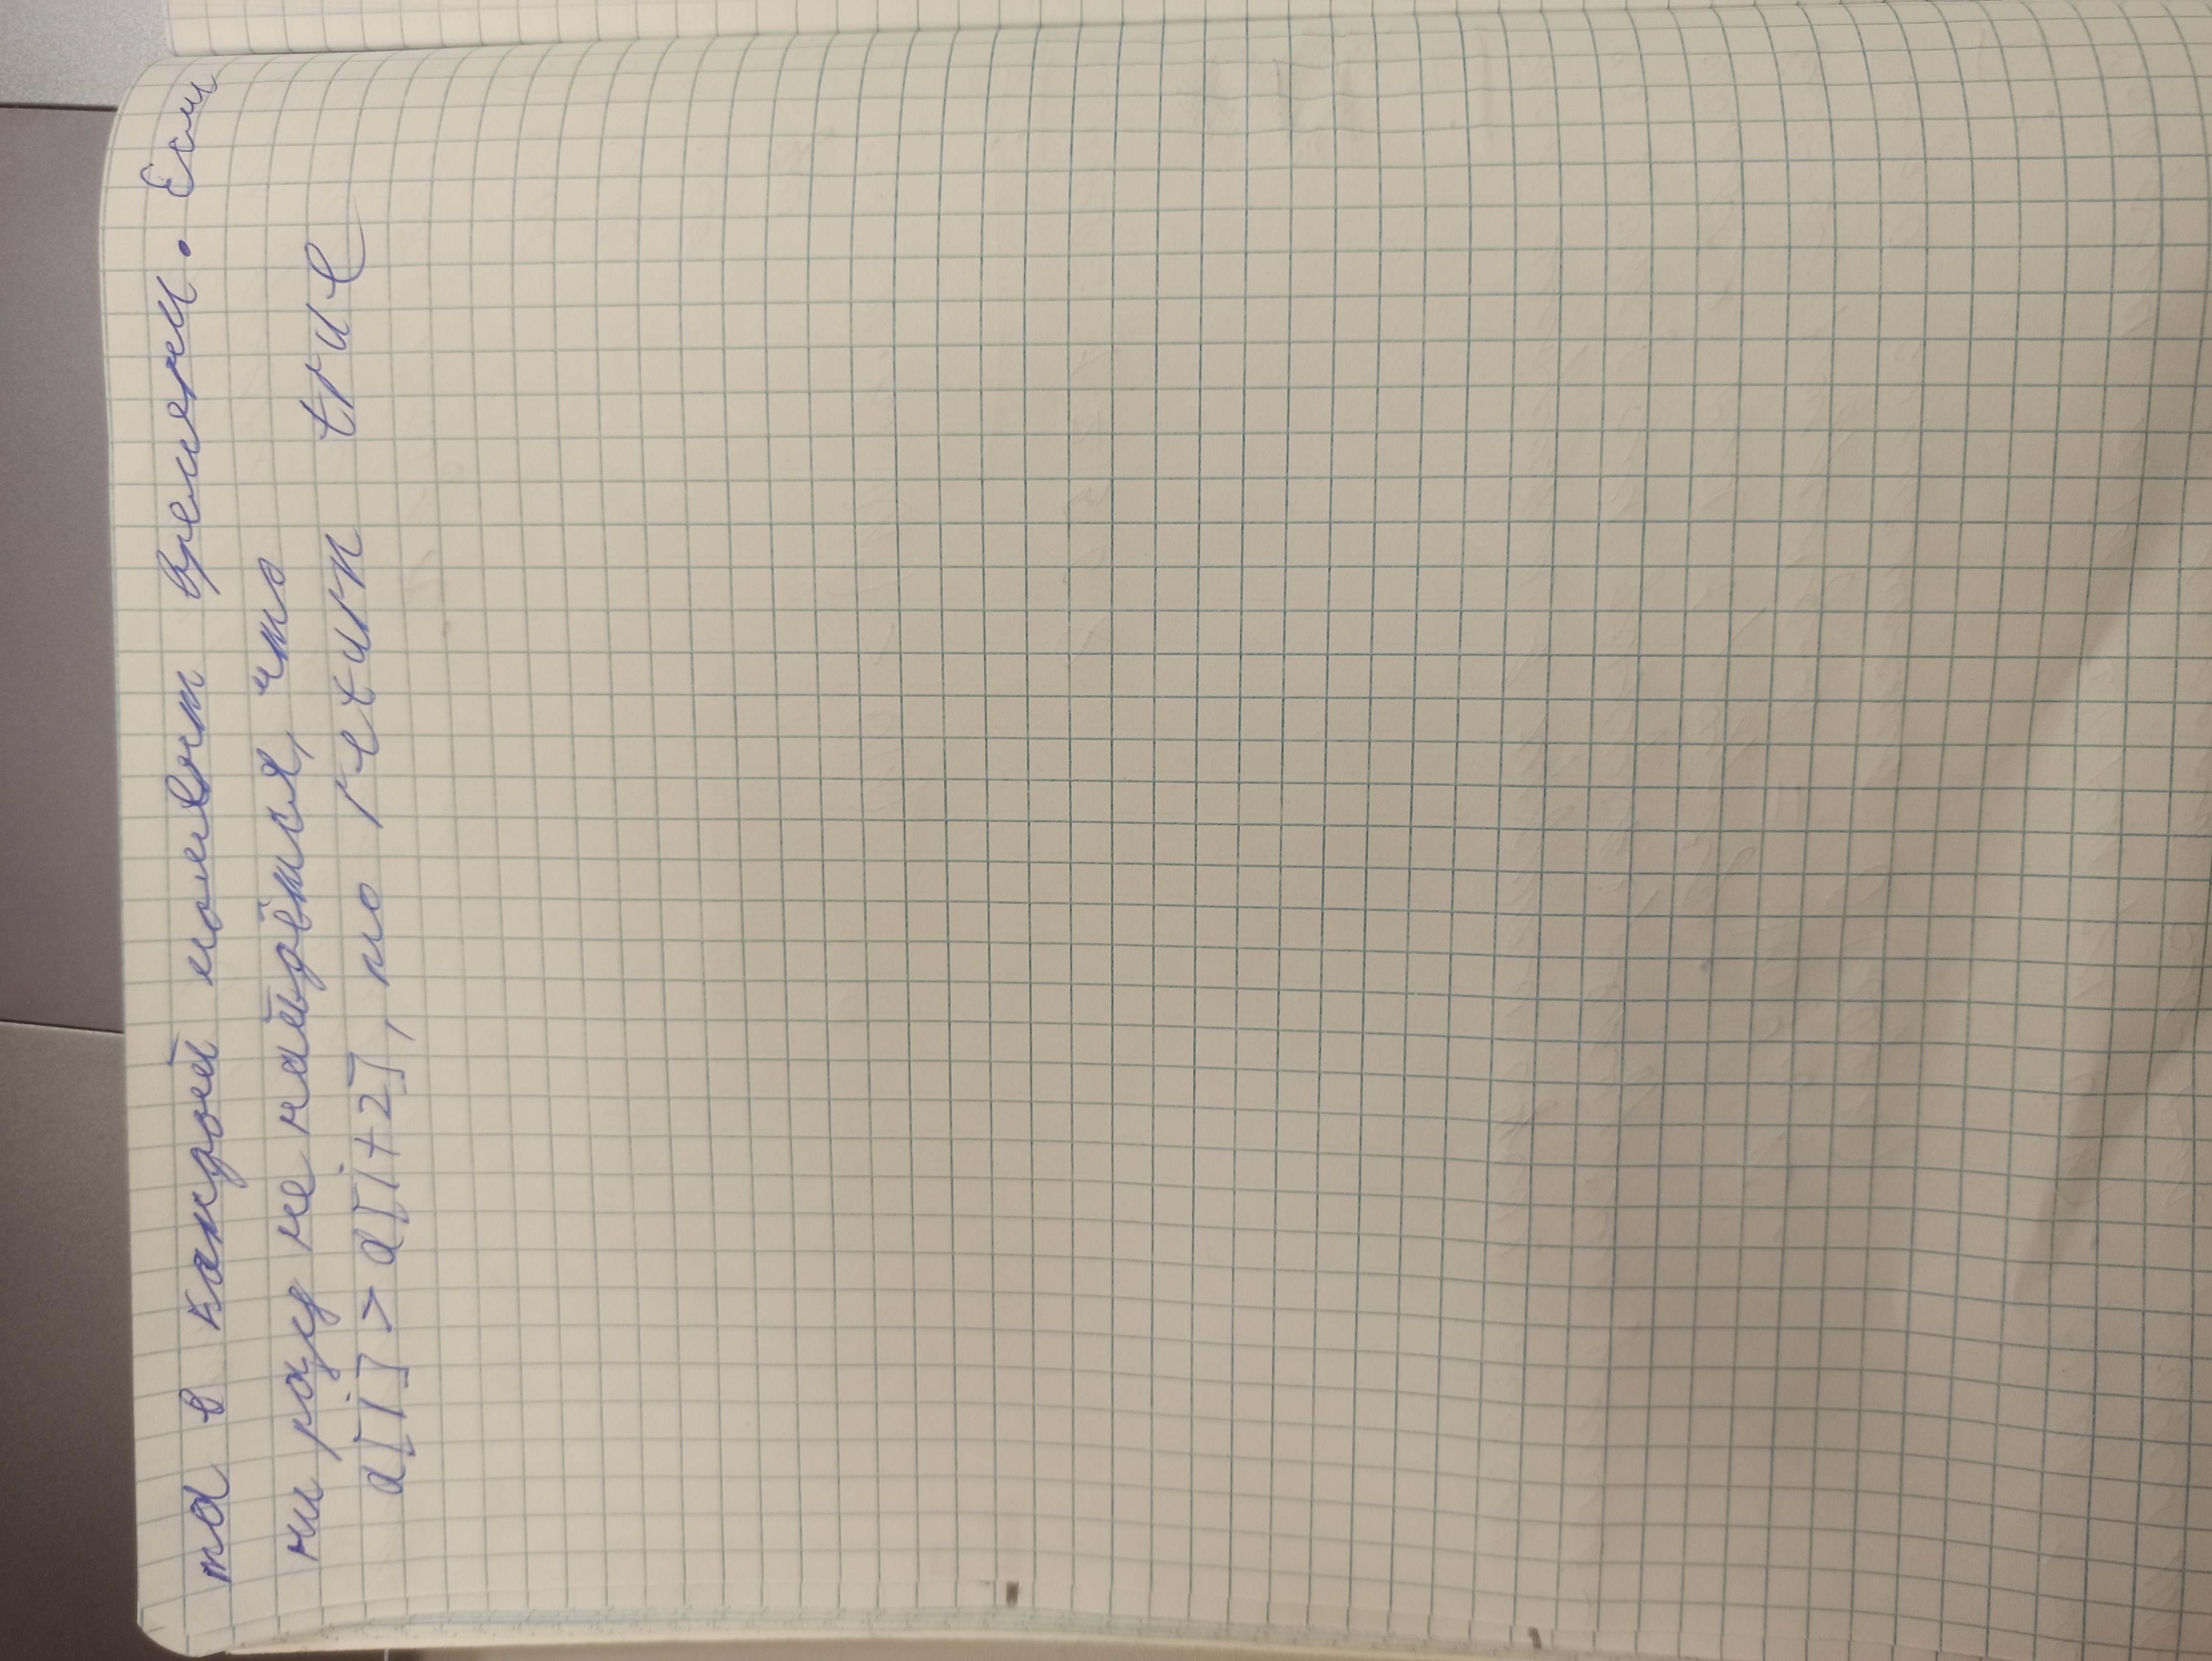 та в каждый момент времени. Если
ни разу не найдётся, что
a[i] > a[i+2], то return true